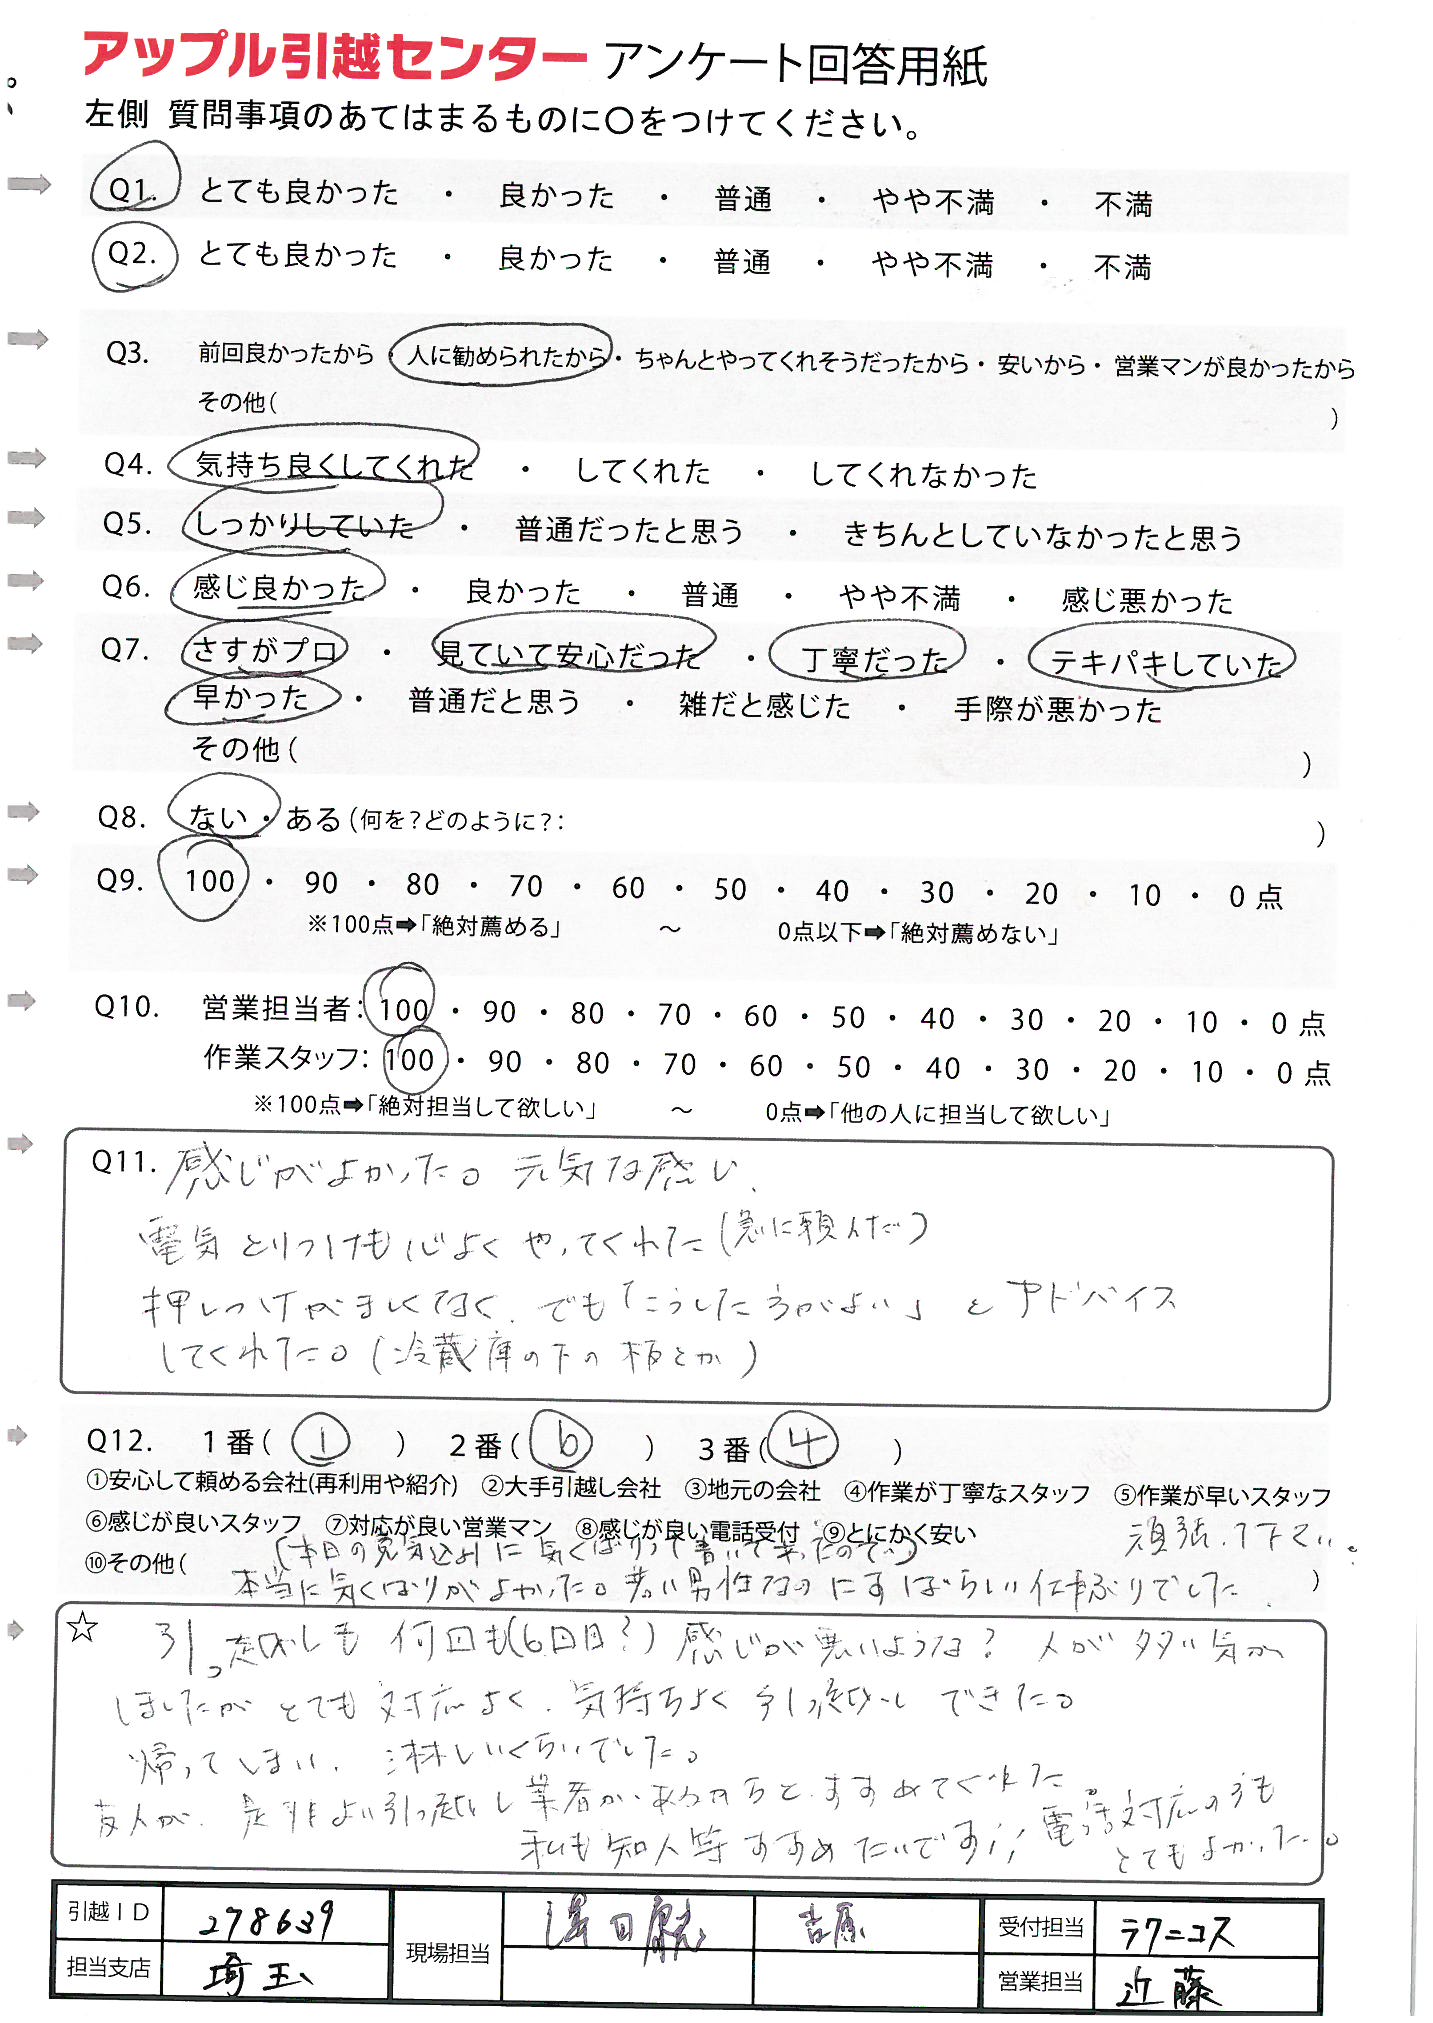 アップル引越センター アンケート回答用紙
左側 質問事項のあてはまるものに〇をつけてください。
Q1. とても良かった ・ 良かった ・ 普通 ・ やや不満 ・ 不満
Q2. とても良かった ・ 良かった ・ 普通 ・ やや不満 ・ 不満
Q3. 前回良かったから ・ 人に勧められたから ・ ちゃんとやってくれそうだったから ・ 安いから ・ 営業マンが良かったから
その他( )
Q4. 気持ち良くしてくれた ・ してくれた ・ してくれなかった
Q5. しっかりしていた ・ 普通だったと思う ・ きちんとしていなかったと思う
Q6. 感じ良かった ・ 良かった ・ 普通 ・ やや不満 ・ 感じ悪かった
Q7. さすがプロ ・ 見ていて安心だった ・ 丁寧だった ・ テキパキしていた
早かった ・ 普通だと思う ・ 雑だと感じた ・ 手際が悪かった
その他( )
Q8. ない ・ ある (何を?どのように?: )
Q9. 100 ・ 90 ・ 80 ・ 70 ・ 60 ・ 50 ・ 40 ・ 30 ・ 20 ・ 10 ・ 0 点
※100点➡「絶対薦める」 ～ 0点以下➡「絶対薦めない」
Q10. 営業担当者: 100 ・ 90 ・ 80 ・ 70 ・ 60 ・ 50 ・ 40 ・ 30 ・ 20 ・ 10 ・ 0 点
作業スタッフ: 100 ・ 90 ・ 80 ・ 70 ・ 60 ・ 50 ・ 40 ・ 30 ・ 20 ・ 10 ・ 0 点
※100点➡「絶対担当して欲しい」 ～ 0点➡「他の人に担当して欲しい」
Q11. 感じがよかった。元気な感じ、
電気とりつけも心よくやってくれた(急に頼んだ)
押しつけがましくなく、でも「こうした方がよい」とアドバイス
してくれた。(冷蔵庫の下の板とか)
Q12. 1番( 1 ) 2番( 6 ) 3番( 4 )
①安心して頼める会社(再利用や紹介) ②大手引越し会社 ③地元の会社 ④作業が丁寧なスタッフ ⑤作業が早いスタッフ
⑥感じが良いスタッフ ⑦対応が良い営業マン ⑧感じが良い電話受付 ⑨とにかく安い
(本日の意気込みに気くばりって書いて来たので) 頑張って下さい。
⑩その他( 本当に気くばりがよかった。若い男性なのにすばらしい仕事ぶりでした。 )
☆ 引っ越しも何回も(6回目?)感じが悪いような?人が多い気が
しましたがとても対応よく、気持ちよく引っ越しできた。
帰ってしまい、淋しいくらいでした。
友人が、是非よい引っ越し業者があるからとすすめてくれた。
私も知人等すすめたいです!! 電話対応の方も
とてもよかった。
引越ID 278639 現場担当 澤田 吉原 受付担当 ラクニコス
担当支店 埼玉 営業担当 近藤